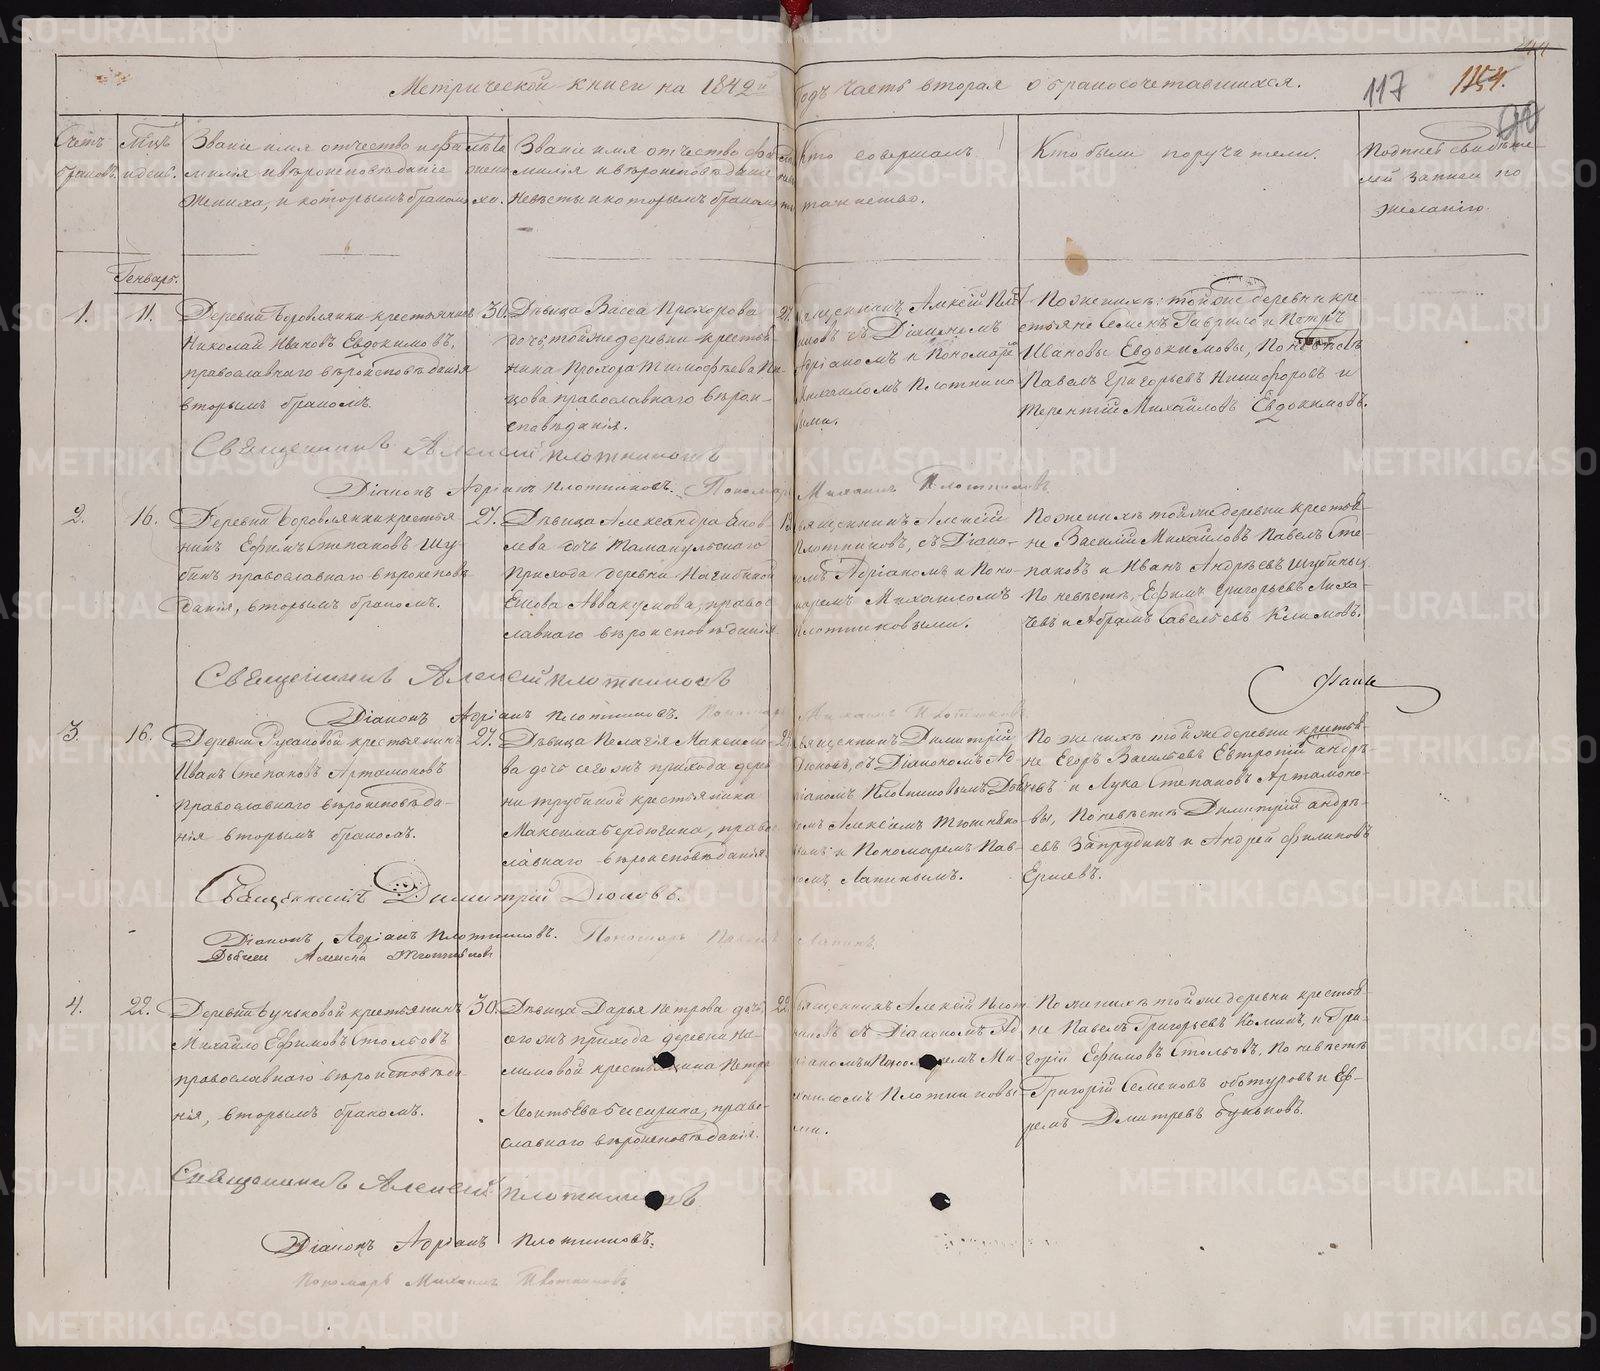 Метрической книги на 1842й годъ часть вторая о бракосочетавшихся.
117
Счетъ браковъ.
Мѣцъ и день.
Званіе имя отчество и фа-
милія и вѣроисповѣданіе
жениха, и которымъ бракомъ
Званіе имя отчество фа-
милія и вѣроисповѣданіе
невѣсты и которымъ бракомъ
Кто совершалъ
таинство.
Кто были поручители.
Подпись свидѣте-
лей записи по
желанію.
Генварь.
1.
11.
Деревни Боровлянки крестьянинъ
Николай Ивановъ Евдокимовъ,
православнаго вѣроисповѣданія
вторымъ бракомъ.
30.
Дѣвица Васса Прохорова
дочь, той же деревни крестья-
нина Прохора Тимофѣева
православнаго вѣрои-
сповѣданія.
Священникъ Алексій Плот-
никовъ съ Діакономъ
Адріаномъ и Пономаре
Михаиломъ Плотнико-
выми.
По женихѣ: той же деревни кре-
стьяне Семенъ Гаврило и Петръ
Ивановы Евдокимовы, по невѣстѣ
Павелъ Григорьевъ Никифоровъ и
Терентій Михайловъ Евдокимовъ.
Священникъ Алексей Плотниковъ
Діаконъ Адріанъ Плотниковъ. Пономарь Михаилъ Плотниковъ
2.
16.
Деревни Боровлянки крестья-
нинъ Ефимъ Степановъ Шу-
бинъ православнаго вѣроисповѣ-
данія, вторымъ бракомъ.
27.
Дѣвица Александра Еков-
лева дочь Тамакульскаго
прихода деревни
Екова Авакумова, правос-
лавнаго вѣроисповѣданія
Священникъ Алексій
Плотниковъ, съ Діако-
номъ Адріаномъ и Поно-
маремъ Михаиломъ
Плотниковыми.
По женихѣ той же деревни крестья-
не Василій Михайловъ Павелъ Сте-
пановъ и Иванъ Андрѣевъ Шубины,
По невѣстѣ, Ефимъ Григорьевъ Лиха-
чевъ и Абрамъ Савельевъ Климовъ.
Священникъ Алексей Плотниковъ
Діаконъ Адріанъ Плотниковъ. Пономарь Михаилъ Плотниковъ
3.
16.
Деревни Русановой крестьянинъ
Иванъ Степановъ Артамоновъ
православнаго вѣроисповѣда-
нія вторымъ бракомъ.
27.
Дѣвица Пелагія Максимо-
ва дочь сегожъ прихода дерев-
ни Трубиной крестьянина
Максима Бердюгина, правос-
лавнаго вѣроисповѣданія.
Священникъ Димитрій
Дюковъ, съ Діакономъ Ад-
ріаномъ Плотниковымъ Дья-
комъ Алексіемъ
и Пономаремъ Пав-
ломъ Лапинымъ.
По женихѣ той же деревни крестья-
не Егоръ Васильевъ Евтропій Андрѣ-
евъ и Лука Степановъ Артамоно-
вы, По невѣстѣ Димитрій Андрѣ-
евъ Запрудинъ и Андрей Филиповъ
Ершевъ.
Священникъ Димитрій Дюковъ.
Діаконъ Адріанъ Плотниковъ. Пономарь Павелъ Лапинъ
4.
22.
Деревни Буньковой крестьянинъ
Михайло Ефимовъ Столбовъ
православнаго вѣроисповѣда-
нія, вторымъ бракомъ.
30.
Дѣвица Дарья Петрова дочь,
сегожъ прихода деревни
крестьянина Петра
Леонтьева, право-
славнаго вѣроисповѣданія.
22
Священникъ Алексій Плот-
никовъ съ Діакономъ Ад-
ріаномъ и Пономаремъ Ми-
хаиломъ Плотниковы-
ми.
По женихѣ той же деревни крестья-
не Павелъ Григорьевъ и Гри-
горій Ефимовъ Столбовъ, по невѣстѣ
Григорій Семеновъ Оботуровъ и Еф-
ремъ Дмитревъ Буньковъ.
Священникъ Алексей Плотниковъ
Діаконъ Адріанъ Плотниковъ.
Пономарь Михаилъ Плотниковъ
METRIKI.GASO-URAL.RU